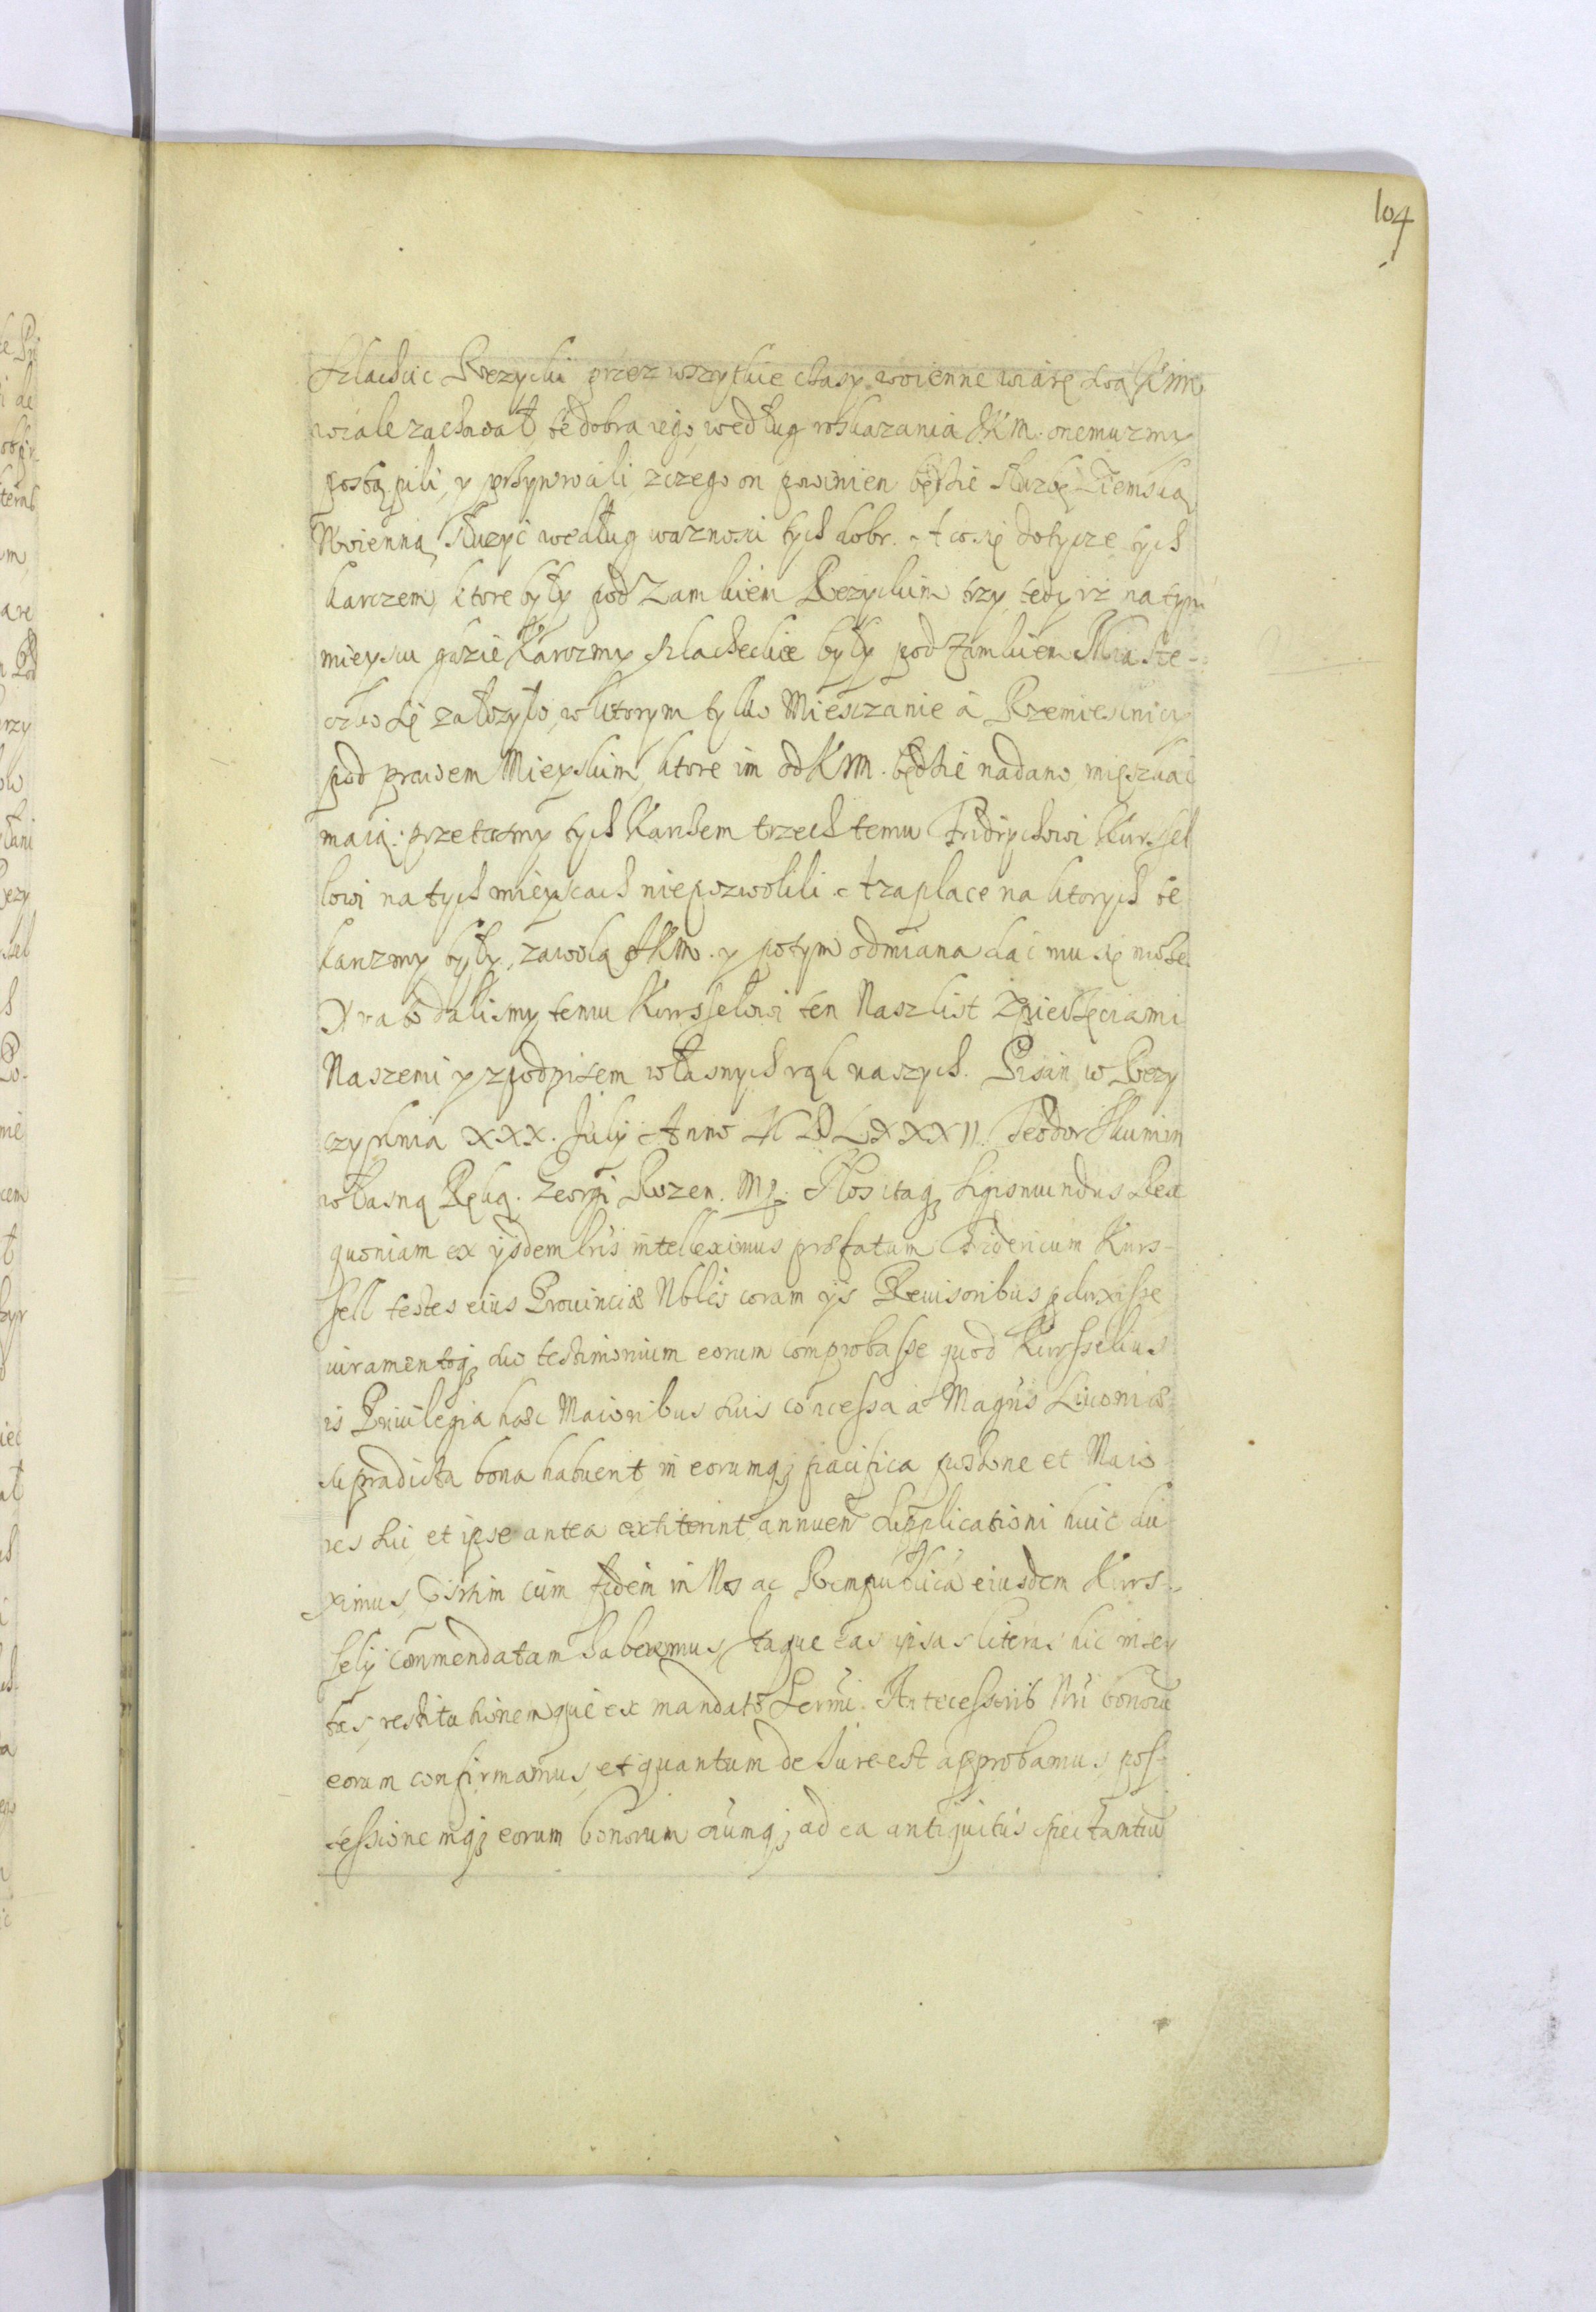 104
Szlachcic Rezycki przez wszytkie czasy woienne wiarę swą KJM
wcale zachował, te dobra iego, według roskazania JKM. onemuzmy
postąpili, y przywrocili, zczego on powinien będzie służbę Ziemską
Woienną służyć według ważności tych dobr. A co się dotycze tych
karczem, ktore były pod Zamkiem Rezyckim trzy, tedy iż na tym
mieyscu gdzie Karczmy szlacheckie były pod Zamkiem Miaste-
czko się założyło, w ktorym tylko Miesczanie á Rzemiesnicy
pod prawem Mieyskim, ktore im od KJM. będzie nadano, mięszkać
maią: przetosmy tych Karczem trzech temu Fridrychowi Kurssel
lowi na tych mieyscach niepozwolili. A za place na ktorych te
karczmy były, zawolą JKM. y potym odmiana dać mu się może
Y na to dalismy temu Kursselowi ten Nasz list z pieczęciami
Naszemi y z podpisem własnych rąk naszych. Pisan w Rezy
czy dnia XXX. July Anno MDLXXXII. Teodor Skumin
własną Ręką. Georgi Rozen. Mp. Nos itaq; Sigismundus Rex
quoniam ex ijsdem lris intelleximus præfatum Fridericum Kurs-
sell testes eius Prouinciæ Nobles coram ijs Reuisoribus pduxisse
iuramentoq; duo testimonium eorum comprobasse quod Kursselius
is Priuilegia hæc Maioribus suis concessa à Magris Liuoniæ
supradicta bona habuerit, in eorumq; pacifica possone et Maio
res sui, et ipse antea extiterint, annuen. supplicationi huic du
ximus, Prsetim cum fidem in Nos ac Rempublicā eiusdem Kurs-
selij commendatam haberemus, Itaque eas ipsas literas hic inser
tas, restitutionemque ex mandato Sermi. Antecessoris Nri bonorū
eorum confirmamus, et quantum de Iure est approbamus, pos-
sessionemq; eorum bonorum oiumq; ad ea antiquitùs spectantiū